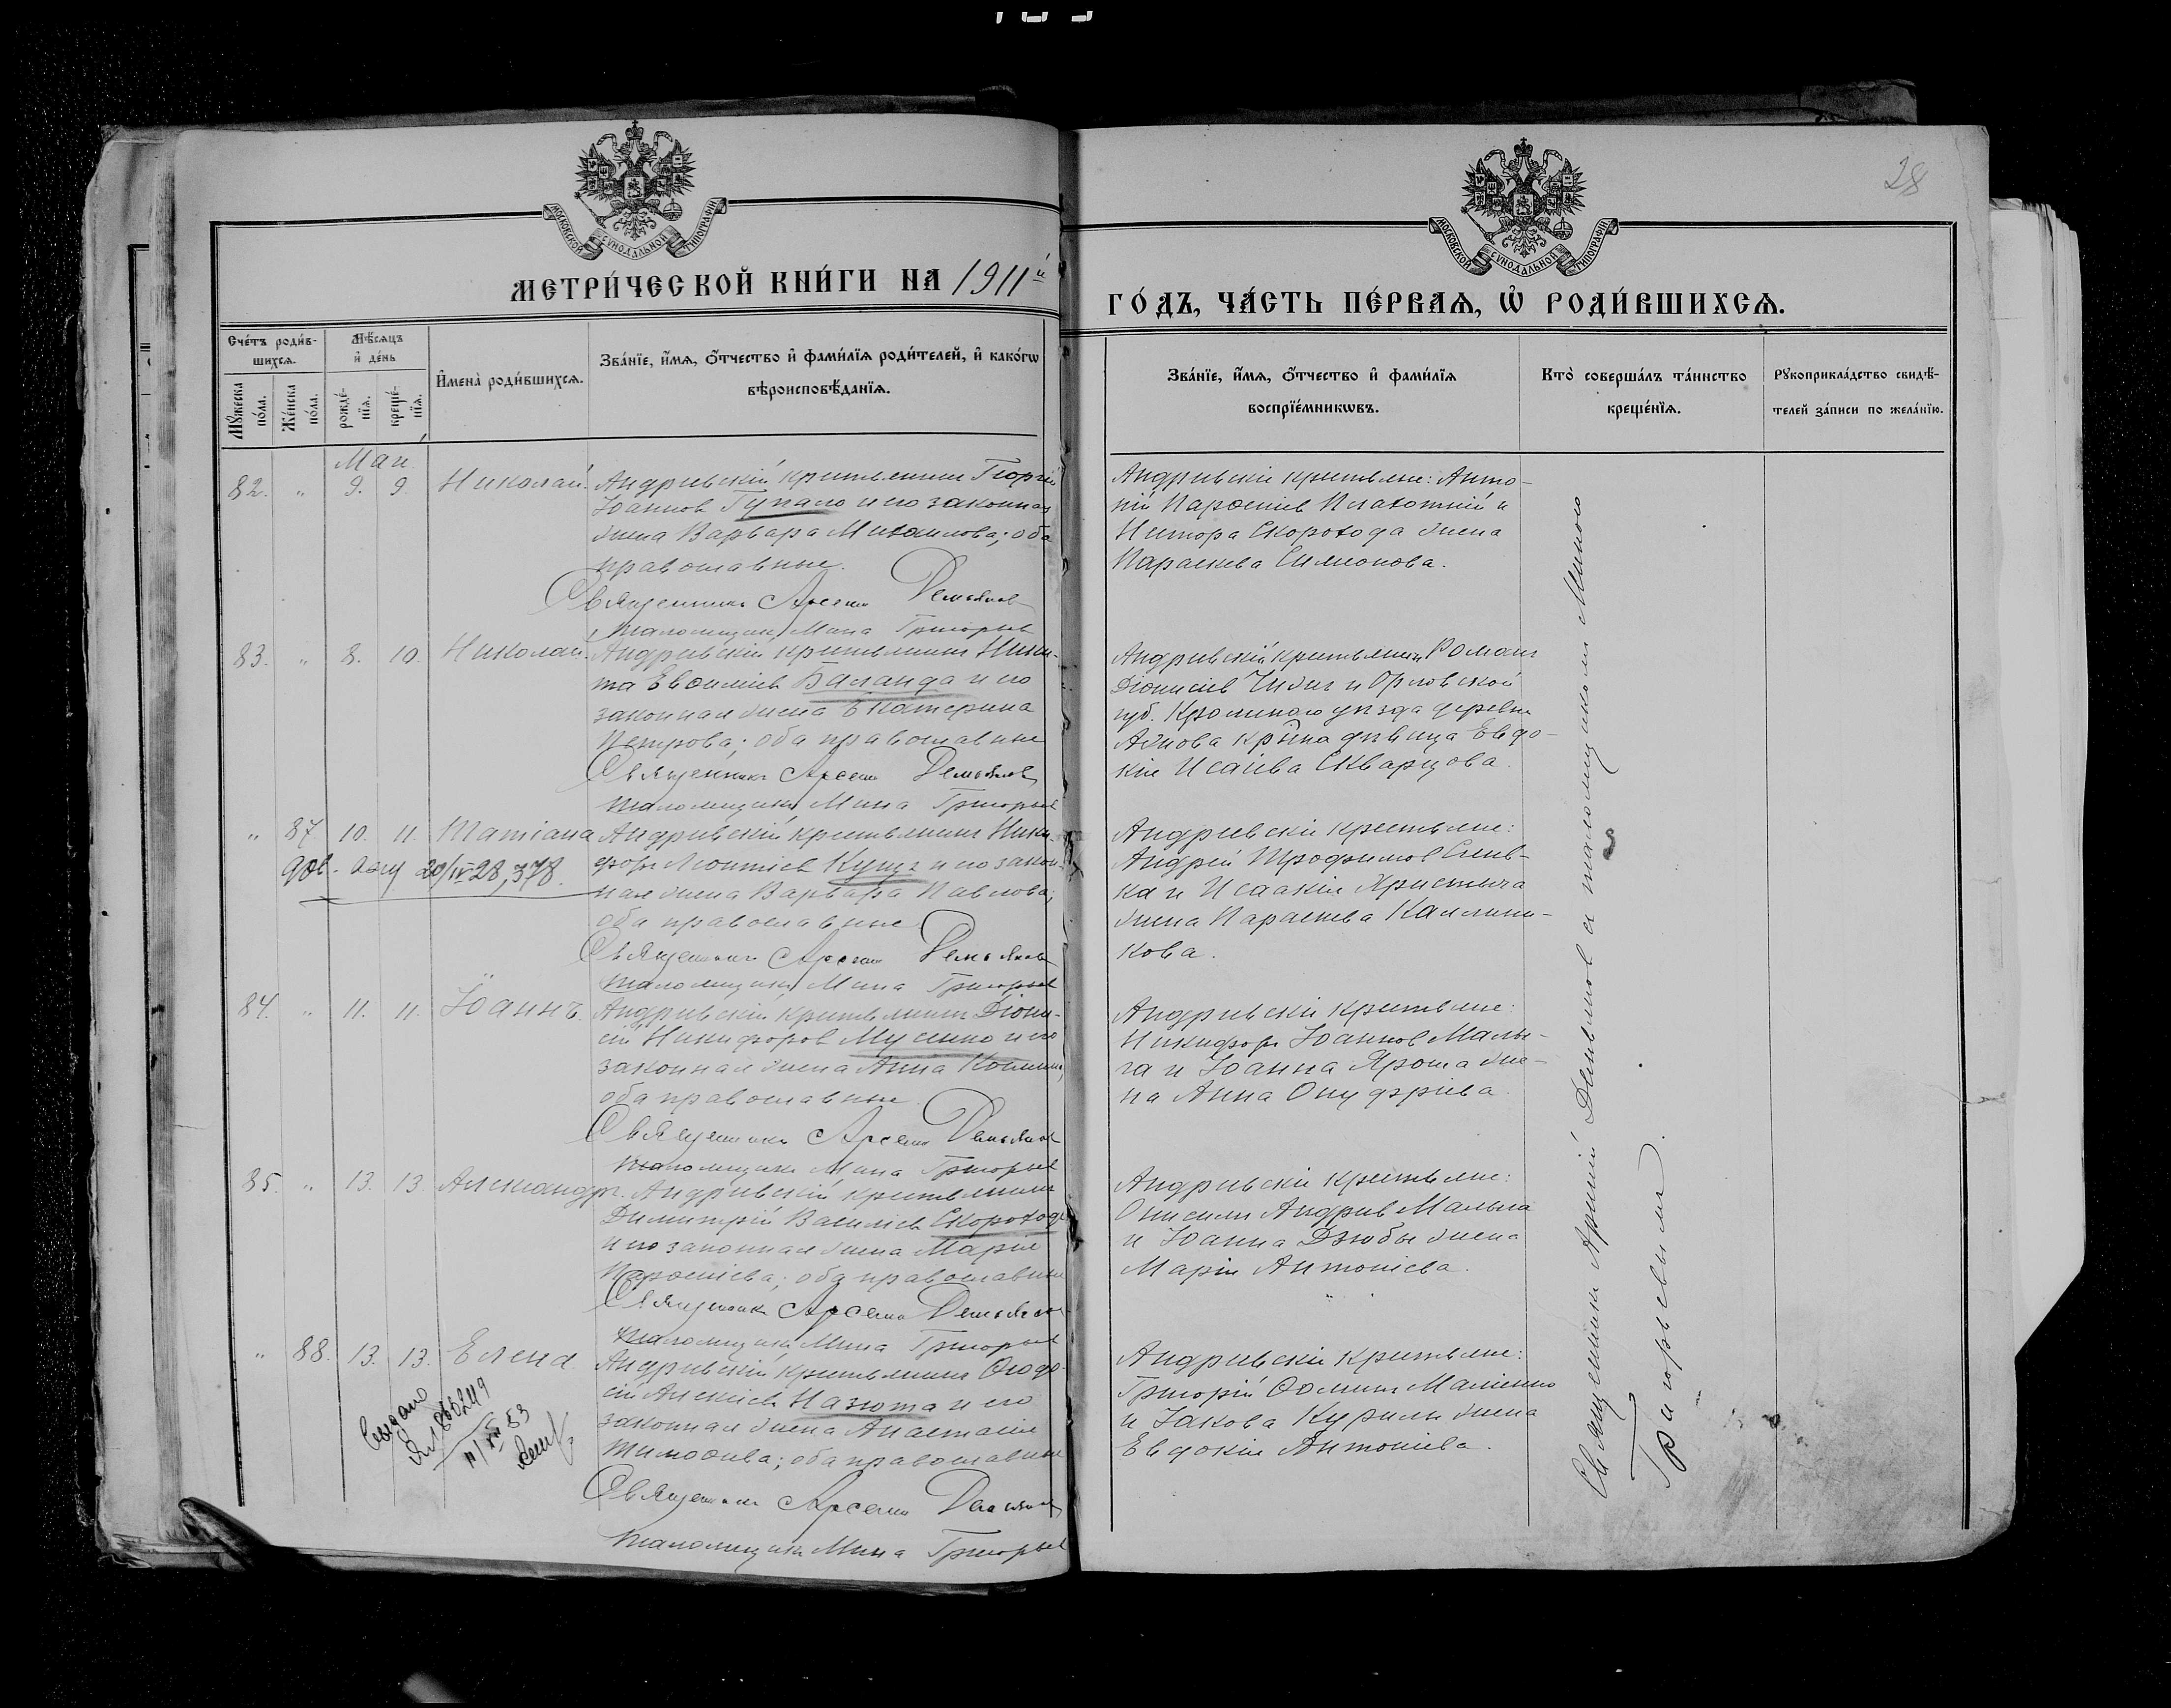 28
МОСКОВСКОЙ СѴНОДАЛЬНОЙ ТИПОГРАФІИ
МОСКОВСКОЙ СѴНОДАЛЬНОЙ ТИПОГРАФІИ
МЕТРИ́ЧЕСКОЙ КНИ́ГИ НА 1911й
ГО́ДЪ, ЧА́СТЬ ПЕ́РВАѦ, Ѡ РОДИ́ВШИХСѦ.
Сче́тъ роди́в-
шихсѧ.
Мѣ́сѧцъ
и҆ де́нь
Мꙋ́жеска по́ла.
Же́нска по́ла.
рожде́-
нїѧ.
креще́-
нїѧ.
И҆мена̀ роди́вшихсѧ.
Зва́нїе, и҆́мѧ, ѻ҆́тчество и҆ фами́лїѧ роди́телей, и҆ како́гѡ
вѣроисповѣ́данїѧ.
Зва́нїе, и҆́мѧ, ѻ҆́тчество и҆ фами́лїѧ
воспрїе́мникѡвъ.
Кто̀ соверша́лъ та́инство
креще́нїѧ.
Рꙋкоприкла́дство свидѣ́-
телей за́писи по жела́нїю.
Май
82. " 9. 9. Николай. Андреевскій крестьянинъ Георгій
Іоанновъ Гупало и его законная
жена Варвара Михаилова; оба
православные.
Священникъ Арсеній Демьянов
Псаломщикъ Мина Григорьев
Андреевскіе крестьяне: Анто-
ній Парѳеніев Плахотній и
Нестора Скорохода жена
Параскева Симеонова.
83. " 8. 10. Николай. Андреевскій крестьянинъ Ники-
та Евѳиміев Баланда и его
законная жена Екатерина
Петрова; оба православные
Священникъ Арсеній Демьянов
Псаломщикъ Мина Григорьев
Андреевскій крестьянинъ Романъ
Діонисіев Чижъ и Орловской
губ. Кромского уѣзда деревни
кр̃нка дѣвица Евдо-
кія Исаіева Скварцова
" 87 10. 11. Татіана Андреевскій крестьянинъ Ники-
форъ Леонтіев Куцъ и его закон-
ная жена Варвара Павлова;
оба православные
20/IV 28, 378.
Священникъ Арсеній Демьянов
Псаломщикъ Мина Григорьев
Андреевскіе крестьяне:
Андрей Трофимов Слив-
ка и Исаакія Христича
жена Параскева Каллини-
кова.
84. " 11. 11. Іоаннъ. Андреевскій крестьянинъ Діони-
сій Никифоров Мусенко и его
законная жена Анна Космина,
оба православные
Священникъ Арсеній Демьянов
Псаломщикъ Мина Григорьев
Андреевскіе крестьяне:
Никифоръ Іоаннов Малы-
га и Іоанна Яроша же-
на Анна Онуфріева
85. " 13. 13. Александръ. Андреевскій крестьянинъ
Димитрій Василіев Скороходъ
и его законная жена Марія
Парѳеніева; оба православные
Священникъ Арсеній Демьянов
Псаломщикъ Мина Григорьев
Андреевскіе крестьяне:
Онисимъ Андреев Малыга
и Іоанна Дзюбы жена
Марія Антоніева.
" 88. 13. 13. Елена. Андреевскій крестьянинъ Ѳеодо-
сій Алексіев Назюта и его
законная жена Анастасія
Тимоѳеева; оба православные
Священникъ Арсеній Демьянов
Псаломщикъ Мина Григорьев
Андреевскіе крестьяне:
Григорій Ѳоминъ Масенко
и Іакова Курилы жена
Евдокія Антоніева.
Священникъ Арсеній Демьянов и псаломщикомъ Миною
Григорьевымъ.